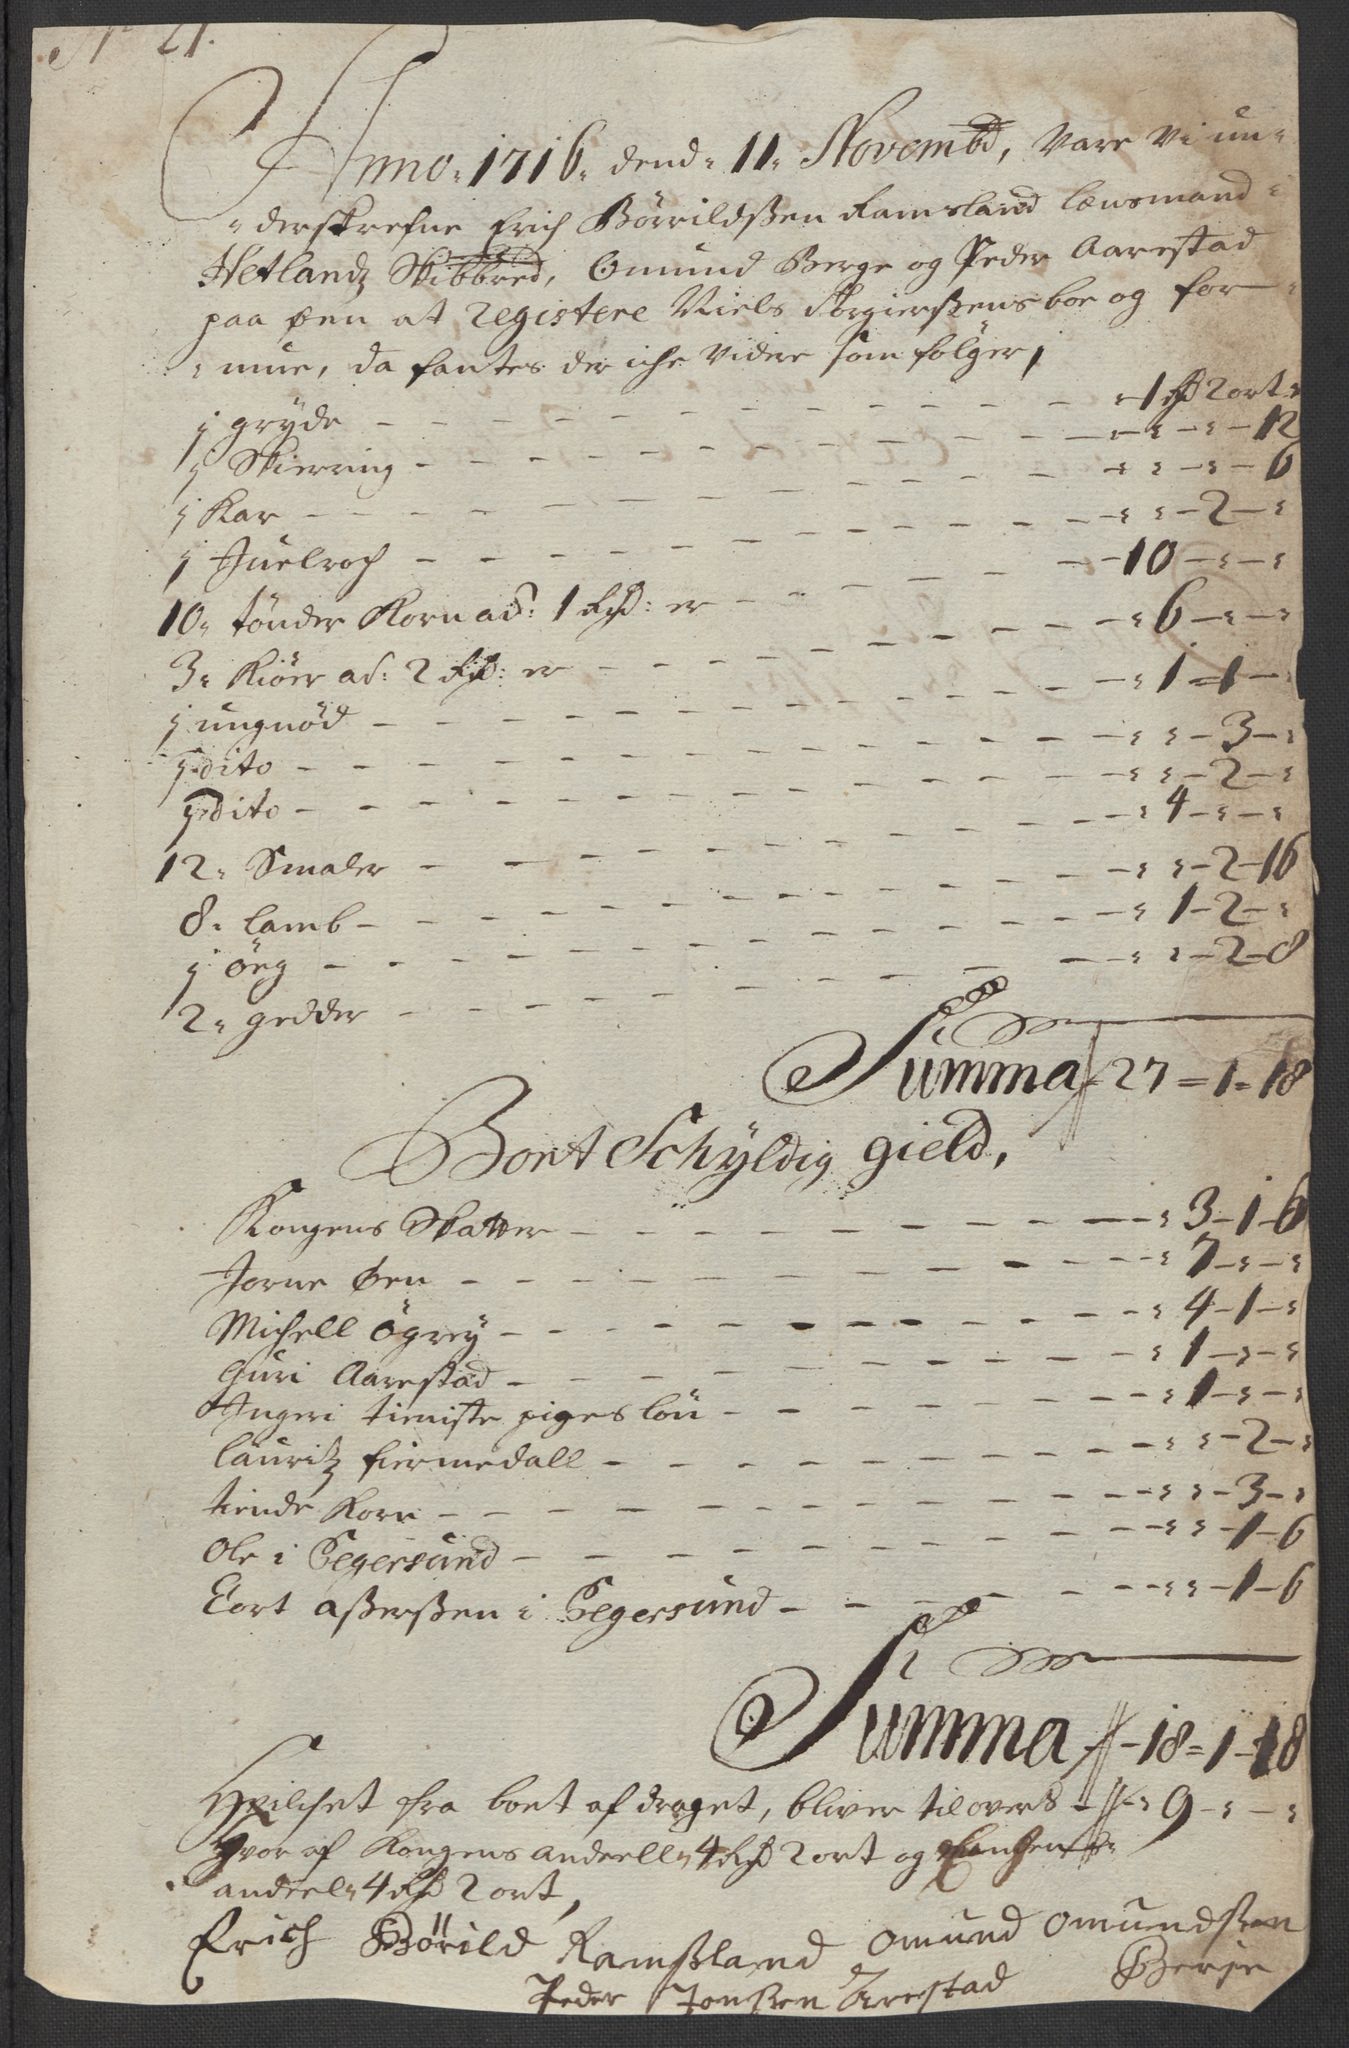 No 21.
Anno 1716 dend 11 Novembd, Vare Vi un-
derskrefne Erich Börrildßen Ramsland lænsmand
Hetlandz Skibbred, Omund Berge og Peder Aarestad
paa øen at registere Niels Torgierßens boe og for-
mue, da fantes der iche videre som følger,
1 gryde - - 1 Rd 2 ort -
1 Skierring - - 12
1 Kar - - 6
1 Juelroch - - 2 -
10 tønder Korn ad: 1 Rd: er - 10 - -
3 Kiöer ad: 2 Rd: er - 6 - -
1 ungnöd - 1 - 1 -
1 dito - - 3 -
1 dito - - 2 -
12 Smaler - 4 - -
8 lamb - - 2 - 16
1 öeg - 1 - 2 -
2 gedder - - 2 - 8
Summa 27 = 1 = 18
Boet Schyldig gield,
Kongens Skatter - 3 - 1 - 6
Jorne Øen - 7 - -
Michell Ögrey - 4 - 1 -
Guri Aarestad - 1 - -
Ingeri tieniste piges lön - 1 - -
Lauritz fiermedall - - 2 -
tiende Korn - - 3 -
Ole i Egersund - - 1 - 6
Cort aßerßen i Egersund - - 1 - 6
Summa 18 = 1 - 18
Hvilchet fra boet af draget, bliver til overs - 9 - -
Hvor af Kongens andeell 4 Rd 2 ort og
andeel 4 Rd 2 ort,
Erich Börild Ramßland Omund Omundßen
Peder Jonßen Arestad Berje